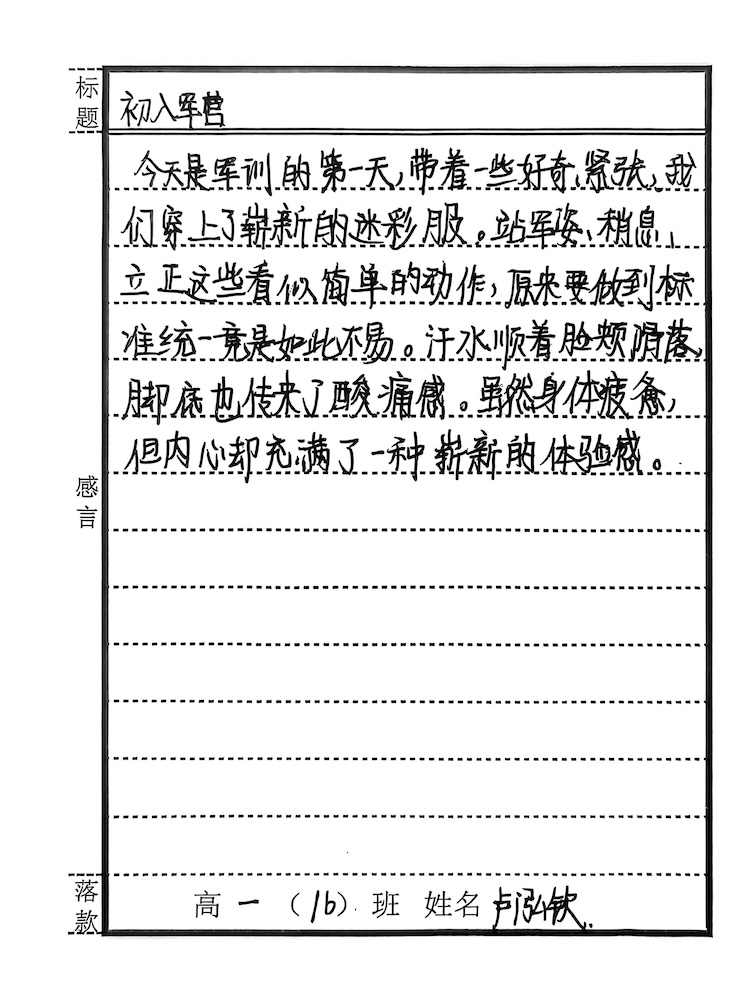 标题
初入军营
今天是军训的第一天,带着一些好奇、紧张,我
们穿上了崭新的迷彩服。站军姿、稍息、
立正这些看似简单的动作,原来要做到标
准统一竟是如此不易。汗水顺着脸颊滑落,
脚底也传来了酸痛感。虽然身体疲惫,
但内心却充满了一种崭新的体验感。
感言
落款
高一(16)班 姓名 卢泓钦